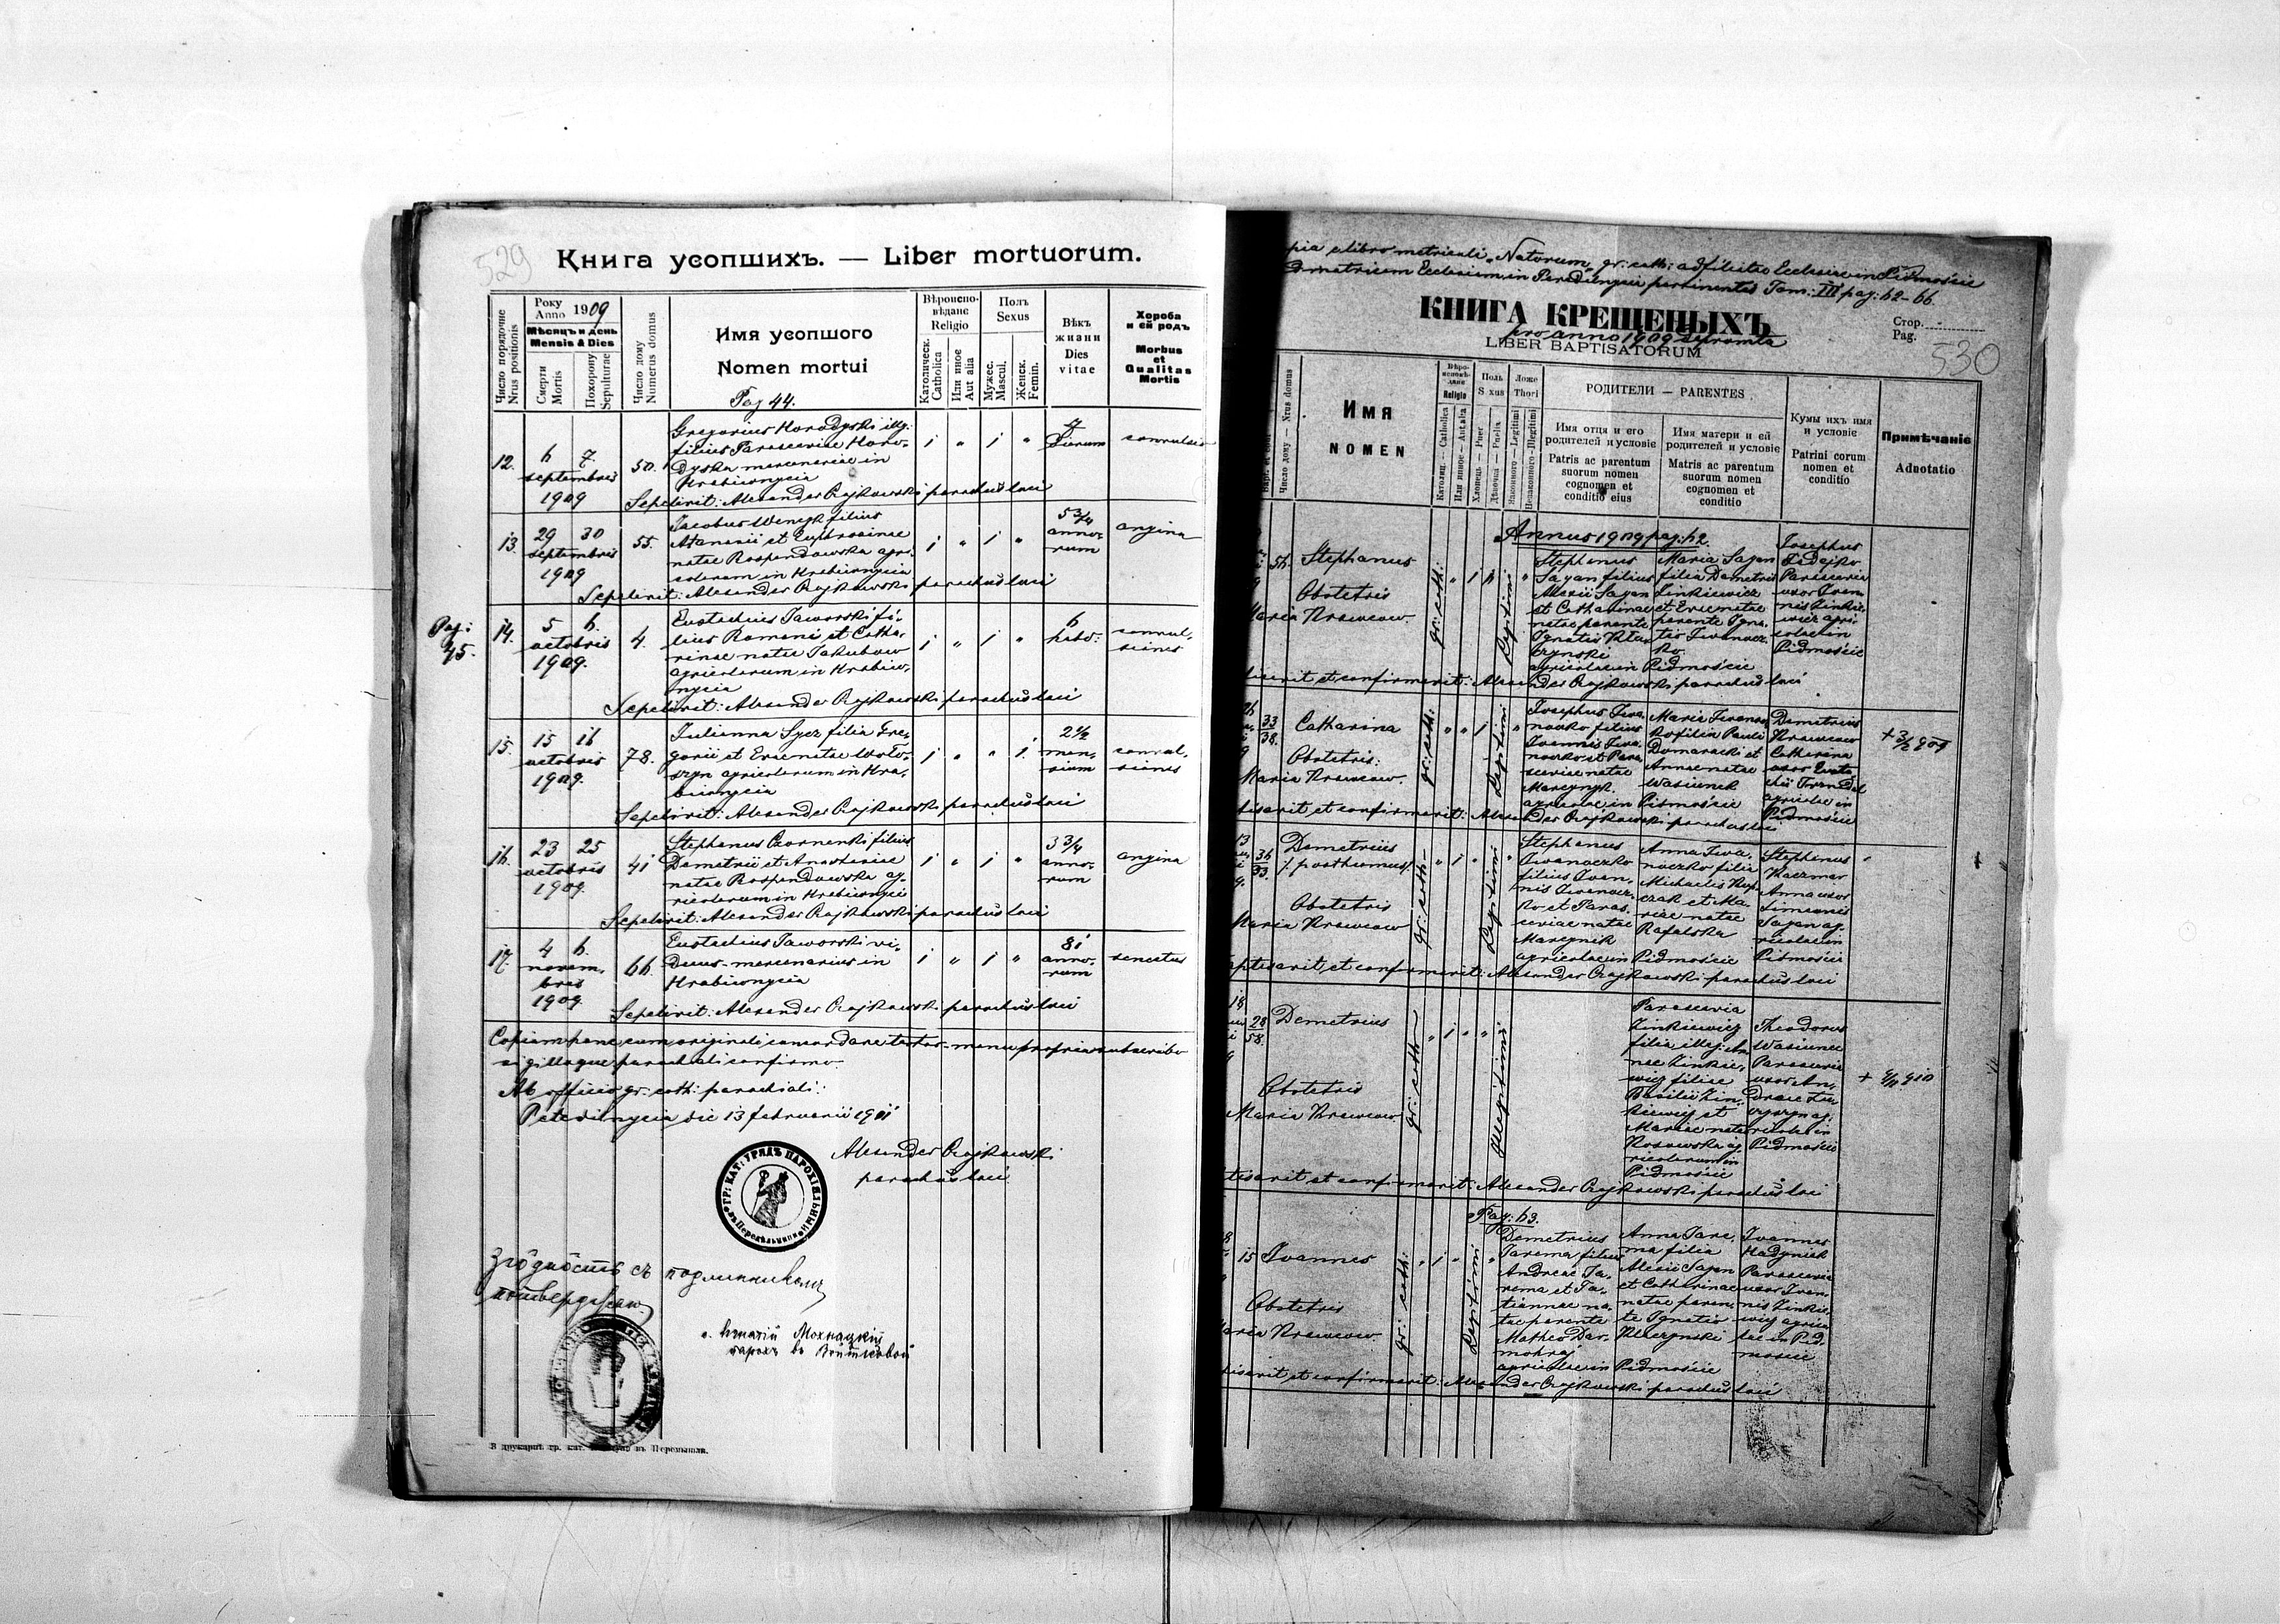 529
Книга усопшихъ. — Liber mortuorum.
Число порядочне
Nrus positionis
Року
Anno 1909
Мѣсяцъ и день
Mensis & Dies
Смерти
Mortis
Похорону
Sepulturae
Число дому
Numerus domus
Имя усопшого
Nomen mortui
Pag 44.
Вѣроиспо-
вѣдане
Religio
Католическ.
Catholica
Или иное
Aut alia
Полъ
Sexus
Мужес.
Mascul.
Женск.
Femin.
Вѣкъ
жизни
Dies
vitae
Хороба
и ей родъ
Morbus
et
Qualitas
Mortis
12.
6 7
septembris
1909
50.
Gregorius Horodyski illeg:
filius Parasceviae Horo-
dyska mercenariae in
Hrabiwnycia
1 " 1 "
dierum
convulsio
Sepelivit: Alexander Czajkowski parochus loci
13.
29 30
septembris
1909
55.
Jacobus Wenczk filius
Atanasii et Euphrosinae
natae Rospondowska agri-
colarum in Hrabiwnycia
1 " 1 "
5 3/4
anno-
rum
angina
Sepelivit: Alexander Czajkowski parochus loci
Pag:
45.
14.
5 6.
octobris
1909.
4.
Eustachius Jaworski fi-
lius Romani et Catha-
rinae natae Jakubow
agricolarum in Hrabiw-
nycia
1 " 1 "
6
hebd:
convul-
siones
Sepelivit: Alexander Czajkowski parochus loci
15.
15 16
octobris
1909.
78.
Julianna Sycz filia Gre-
gorii et Evae natae Woło-
szyn agricolarum in Hra-
biwnycia
1 " " 1
2 1/2
men-
sium
convul-
siones
Sepelivit: Alexander Czajkowski parochus loci
16.
23 25
octobris
1909.
41
Stephanus Czornenki filius
Demetrii et Anastasiae
natae Rospondowska ag-
ricolarum in Hrabiwnycia
1 " 1 "
3 3/4
anno-
rum
angina
Sepelivit: Alexander Czajkowski parochus loci
17.
4 6.
novem-
bris
1909.
66.
Eustachius Jaworski vi-
duus - mercenarius in
Hrabiwnycia
1 " 1 "
81
anno-
rum
senectus
Sepelivit: Alexander Czajkowski parochus loci
Copiam hanc cum originali concordare testor - manu propria subscribo
sigilloque parochiali confirmo.
Ab officio gr: cath: parochiali:
Peredilnycia die 13 februarii 1911
Alexander Czajkowski
parochus loci
ГР: КАТ: УРЯДЪ ПАРОХІЯЛЬНЫЙ
Згôдность съ подлинникомъ
потверджаю
о. Игнатій Мохнацкій
парохъ въ Войтковой
В друкарнѣ гр. кат. въ Перемышли.
copia e libro metricali "Natorum" gr: cath: ad filialis Ecclesiae in Pidmoście
ad matricem Ecclesiam in Peredilnycia pertinentis Tom: III pag: 62-66
КНИГА КРЕЩЕНЫХЪ
pro anno 1909 deprompta
LIBER BAPTISATORUM
Стор.
Pag.
530
Число дому — Nrus domus
Имя
NOMEN
Вѣро-
исповѣ-
дане
Religio
Католиц. — Catholica
Или иное — Aut alia
Полъ
Sexus
Хлопецъ — Puer
Дѣвочка — Puella
Ложе
Thori
Законного — Legitimi
Незаконного — Illegitimi
РОДИТЕЛИ — PARENTES
Имя отца и его
родителей и условіе
Patris ac parentum
suorum nomen
cognomen et
conditio eius
Имя матери и ей
родителей и условіе
Matris ac parentum
suorum nomen
cognomen et
conditio
Кумы ихъ имя
и условіе
Patrini corum
nomen et
conditio
Примѣчаніе
Adnotatio
Annus 1909 pag: 62.
Stephanus
Obstetris
Maria Krawcow
gr: cath:
Legitimi
Stephanus
Sagan filius
Alexii Sagan
et Catharinae
natae parente
Ignatio Klu-
czynski
agricolae in Pidmoście
Maria Sagan
filia Demetrii
Zinkiewicz
et Evae natae
parente Igna-
tio Iwanocz-
ko.
Josephus
Fedejko
Parascevia
uxor Ivan-
nis Zinkie-
wicz agri-
colae in
Pidmoście
Baptisavit et confirmavit: Alexander Czajkowski parochus loci
33
38.
Catharina
Obstetris:
Maria Krawcow.
gr: cath:
Legitimi
Josephus Iwa-
noczko filius
Ioannis Iwa-
noczko et Para-
sceviae natae
Marcynyk
agricolae in Pidmoście
Maria Iwanocz-
ko filia Pauli
Domaracki et
Annae natae
Wasiunek
Demetrius
Krawcow
Catharina
uxor Eusta-
chii
agricolae in
Pidmoście
+ 3/2 909
Baptisavit et confirmavit: Alexander Czajkowski parochus loci
36
33.
Demetrius
/: posthumus :/
Obstetris
Maria Krawcow
gr: cath:
Legitimi
Stephanus
Iwanoczko
filius Ioan-
nis Iwanocz-
ko et Paras-
ceviae natae
Marcynik
agricolae in Pidmoście
Anna Iwa-
noczko filia
Michaelis Kup-
czak et Ma-
riae natae
Rafalska
Stephanus
Kaczmar
Anna uxor
Simeonis
Sagan ag-
ricolae in
Pidmoście
Baptisavit et confirmavit: Alexander Czajkowski parochus loci
18
28
58.
Demetrius
Obstetris
Maria Krawcow.
gr: cath:
Illegitimi
Parascevia
Zinkiewicz
filia illeg: An-
nae Zinkie-
wicz filiae
Basilii Zin-
kiewicz et
Mariae natae
Kosowska ag-
ricolarum in
Pidmoście
Theodorus
Wasiunec
Parascevia
uxor An-
dreae
ag-
ricolae in
Pidmoście
Baptisavit et confirmavit: Alexander Czajkowski parochus loci
Pag: 63.
15
Ioannes
Obstetris
Maria Krawcow.
gr: cath:
Legitimi
Demetrius
Jarema filius
Andreae Ja-
rema et Ta-
tiannae na-
tae parente
Matheo Dar-
mohraj
agricolae in Pidmoście
Anna Jare-
ma filia
Alexii Sagan
et Catharinae
natae paren-
te Ignatio
Kluczynski
Ioannes
Hadynick
Parascevia
uxor Ioan-
nis Zinkie-
wicz agrico-
lae in Pid-
moście
Baptisavit et confirmavit: Alexander Czajkowski parochus loci